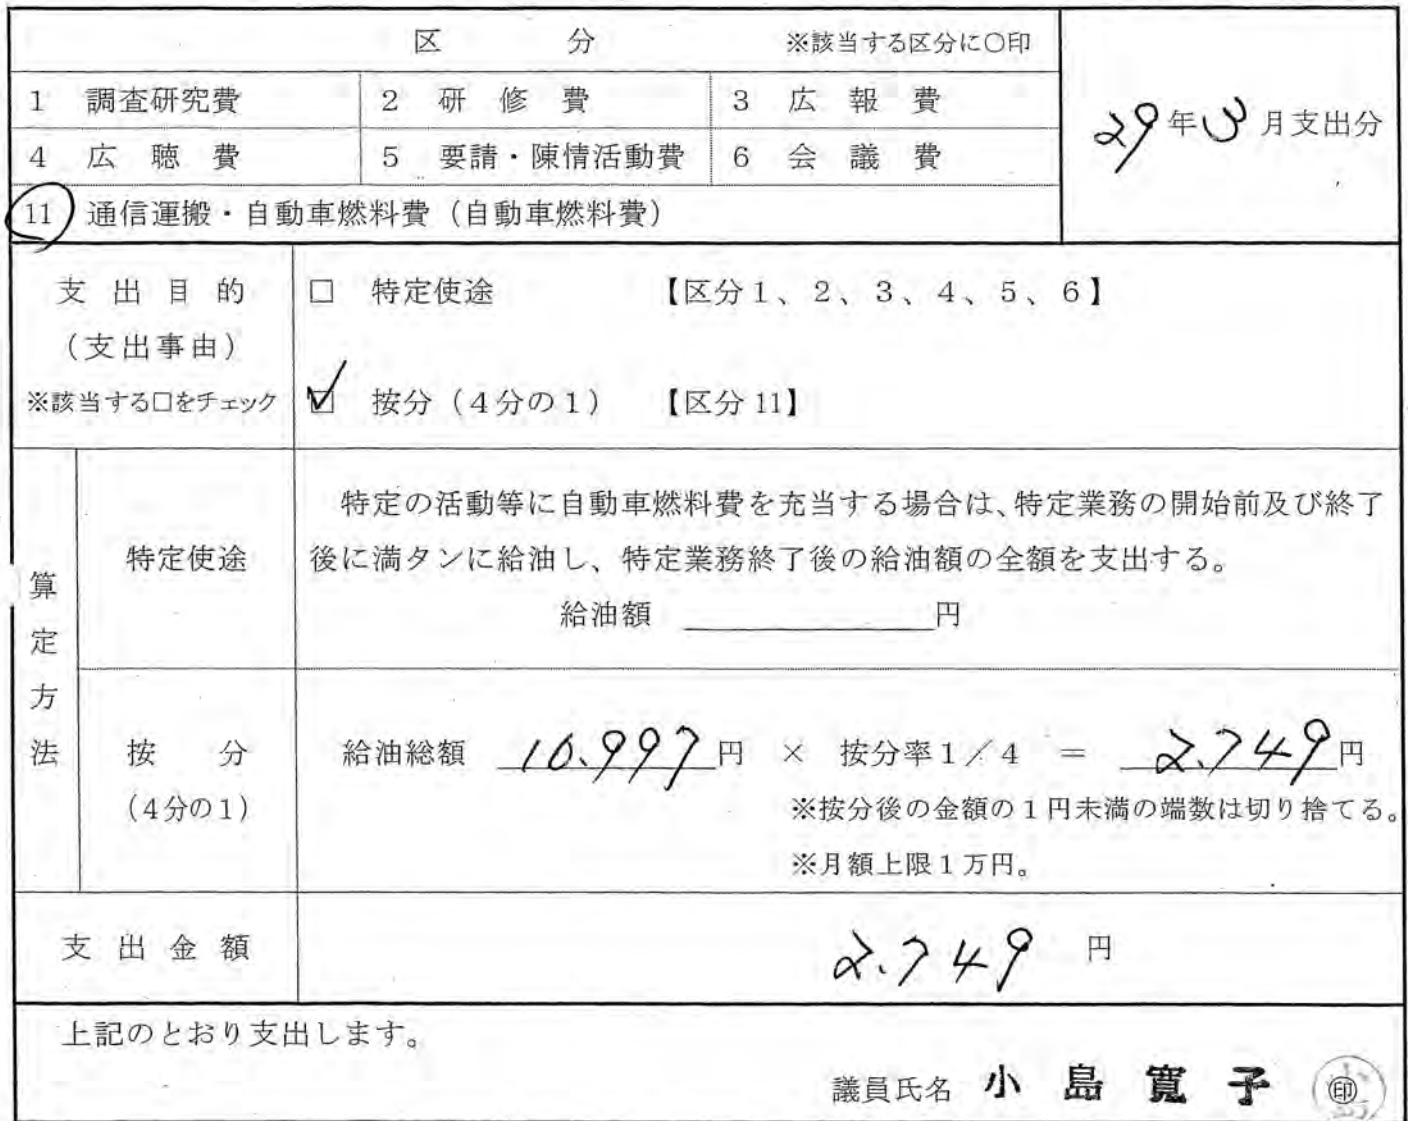 区 分 ※該当する区分に○印
1 調査研究費 2 研修費 3 広報費
29年3月支出分
4 広聴費 5 要請・陳情活動費 6 会議費
11 通信運搬・自動車燃料費（自動車燃料費）
支出目的
（支出事由）
※該当する□をチェック
□ 特定使途 【区分1、2、3、4、5、6】
☑ 按分（4分の1） 【区分11】
算定方法
特定使途
特定の活動等に自動車燃料費を充当する場合は、特定業務の開始前及び終了
後に満タンに給油し、特定業務終了後の給油額の全額を支出する。
給油額 ＿＿＿＿円
按分
（4分の1）
給油総額 10.997円 × 按分率1／4 ＝ 2.749円
※按分後の金額の1円未満の端数は切り捨てる。
※月額上限1万円。
支出金額 2.749 円
上記のとおり支出します。
議員氏名 小島寛子 ㊞